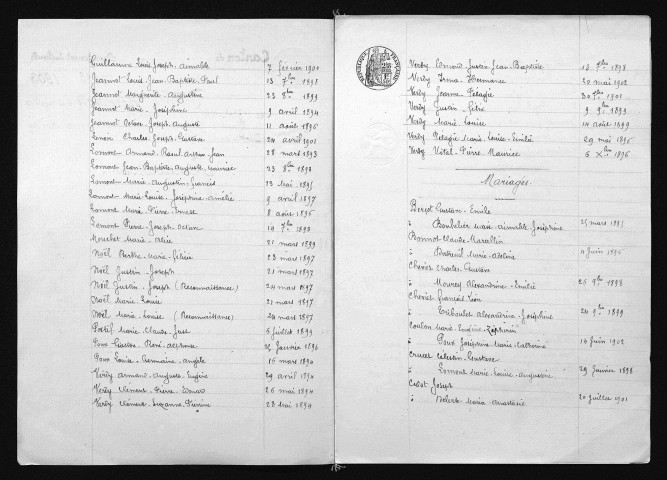 Guillaume Louis Joseph Aimable 7 février 1901
Jeannot Louis Jean Baptiste Paul 13 7bre 1898
Jeannot Marguerite Augustine 23 8bre 1899
Jeannot Marie Joséphine 9 avril 1894
Jeannot Octave Joseph Auguste 11 août 1896
Lenoir Charles Joseph Gustave 24 avril 1901
Lomont Armand Raoul Arthur Jean 28 mars 1893
Lomont Jean Baptiste Auguste Maurice 23 8bre 1893
Lomont Marie Augustin Francis 13 mai 1895
Lomont Marie Louise Joséphine Amélie 9 avril 1897
Lomont Marie Pierre Ernest 8 août 1896
Lomont Pierre Joseph Octave 19 7bre 1893
Mouchet Marie Alice 21 mars 1899
Noël Berthe Marie Félicie 23 mars 1897
Noël Justin Joseph 21 mars 1897
Noël Justin Joseph (Reconnaissance) 24 mars 1897
Noël Marie Louise 21 mars 1897
Noël Marie Louise (Reconnaissance) 24 mars 1897
Petit Marie Claude Just 6 juillet 1899
Poux Gustave René Alphonse 25 Janvier 1896
Poux Louise Germaine Angèle 16 mars 1894
Verdy Armand Auguste Eugène 29 avril 1894
Verdy Clément Pierre Edouard 26 mai 1894
Verdy Clémence Suzanne Pierrine 23 mai 1894
Verdy Edmond Justin Jean Baptiste 13 9bre 1898
Verdy Irma Hermance 20 mai 1902
Verdy Jeanne Pélagie 30 1901
Verdy Justin 9 9bre 1899
Verdy Marie Louise 14 août 1899
Verdy Pélagie Marie Louise Emilie 29 mai 1896
Verdy Vital Pierre Maurice 6 Xbre 1896
Mariages
Berçot Gustave Emile
à Bouhelier Marie Aimable Joséphine 25 mars 1895
Bonnot Claude Marallin
à Marie Adeline 11 Juin 1896
Chevier Charles Gustave
à Mourey Alexandrine Emilie 26 9bre 1898
Chevier François Léon
à Thibaulet Alexandrine Joséphine 24 9bre 1899
Coulon Marie Eugène Zéphirin
à Poux Joséphine Marie Catherine 14 Juin 1902
Célestin Gustave
à Lomont Marie Louise Augustine 29 Janvier 1898
Joseph
à Maria Anastasie 20 Juillet 1901